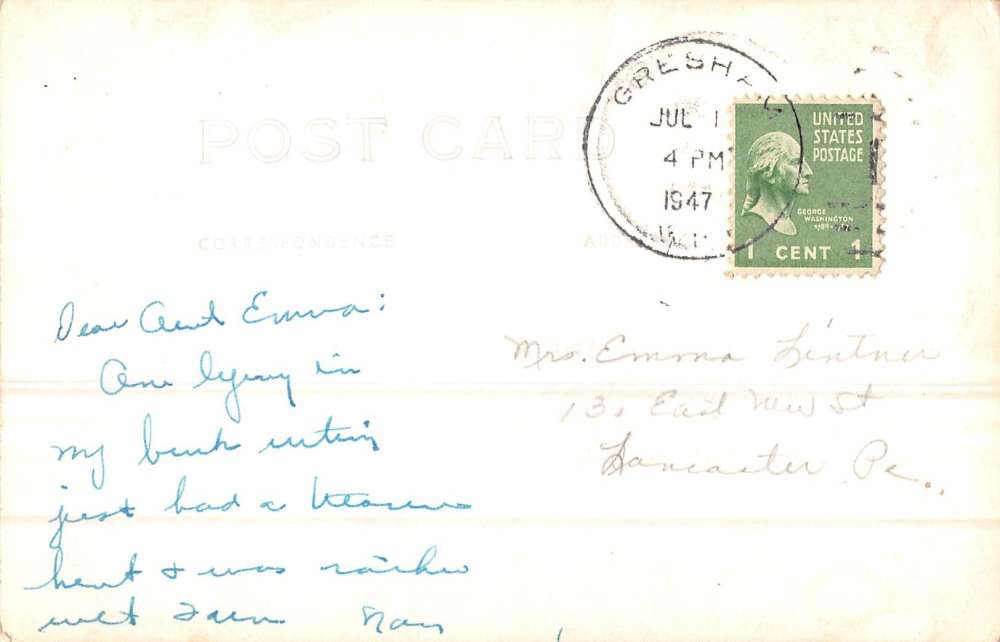 POST CARD
CORRESPONDENCE
GRESHA
JUL 1
4 PM
1947
UNITED
STATES
POSTAGE
GEORGE
WASHINGTON
1 CENT 1
Dear Aunt Emma:
Am lying in
my bunk writing
just had a treasure
hunt & was rather
wet
Nan
Mrs. Emma Lintner
130 East New St
Lancaster Pa.